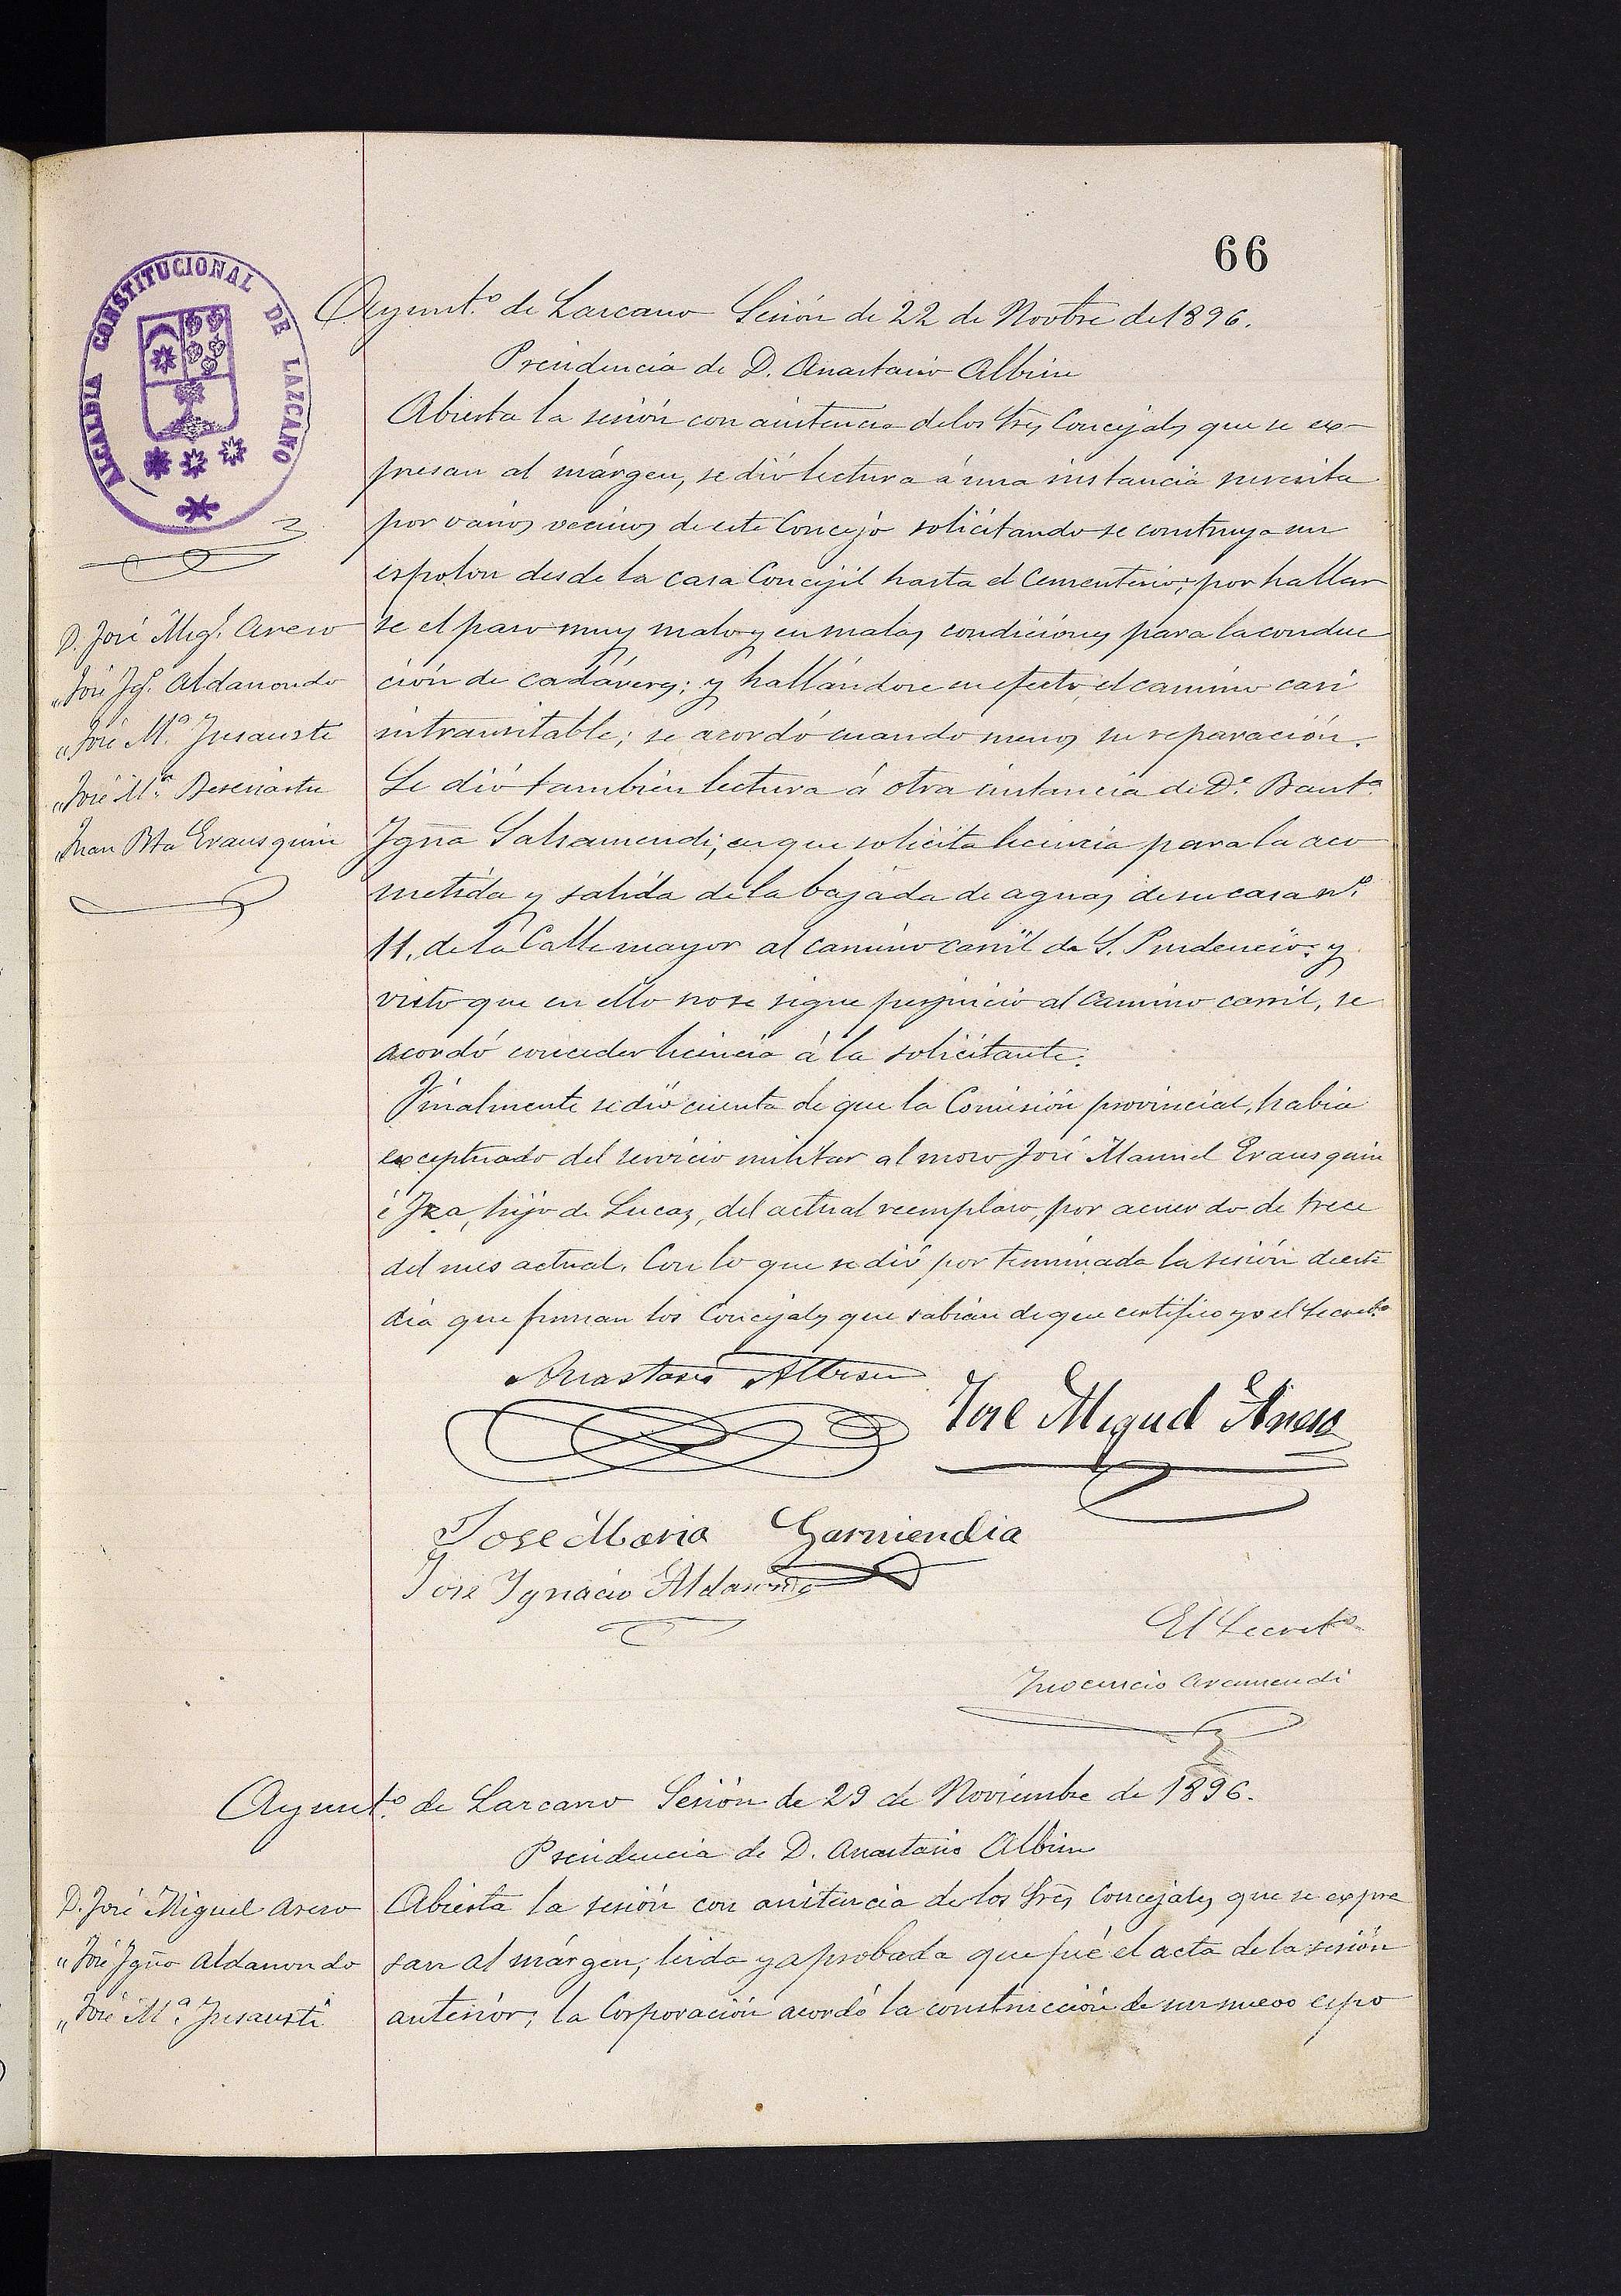 66
ALCALDIA CONSTITUCIONAL DE LAZCANO
Ayunt.º de Lazcano Sesión de 22 de Novbre de 1896.
Presidencia de D. Anastasio Albisu
D. José Mig.l Areso
„ José Ig.º Aldanondo
„ José M.ª Insausti
„ José M.ª Beseriartu
„ Juan Bta Erausquin
Abierta la sesión con asistencia de los Sres Concejales que se ex-
presan al márgen, se dió lectura á una instancia suscrita
por varios vecinos de este Concejo solicitando se construya un
espolon desde la casa Concejil hasta el Cementerio; por hallar
se el paso muy malo y en malas condiciones para la conduc
ción de cadáveres; y hallándose en efecto el camino casi
intransitable; se acordó cuando menos su reparación.
Se dió también lectura á otra instancia de D.ª Baut.ª
Igña Salsamendi; en que solicita licencia para la aco
metida y salida de la bajada de aguas de su casa n.º
11. de la Calle mayor al camino carril de S. Prudencio: y
visto que en ello no se sigue perjuicio al camino carril, se
acordó conceder licencia á la solicitante.
Finalmente se dió cuenta de que la Comisión provincial, habia
exceptuado del servicio militar al mozo José Manuel Erausquin
é Iza, hijo de Lucas, del actual reemplazo, por acuerdo de trece
del mes actual. Con lo que se dió por terminada la sesión de este
dia que firman los Concejales que sabian de que certifico yo el Secret.º
Anastasio Albisu
José Miguel Areso
Jose Maria Garmendia
José Ignacio Aldanondo
El Secret.º
Inocencio Aramendi
Ayunt.º de Lazcano Sesión de 29 de Noviembre de 1896.
Presidencia de D. Anastasio Albisu
D. José Miguel Areso
„ José Igño Aldanondo
„ José M.ª Insausti
Abierta la sesión con asitencia de los Sres Concejales que se expre
san al márgen; leida y aprobada que fué el acta de la sesión
anterior; la Corporación acordó la construcción de un nuevo espo